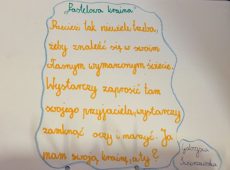 Pastelowa kraina
Przecież tak niewiele trzeba,
żeby znaleźć się w swoim
własnym wymarzonym świecie.
Wystarczy zaprosić tam
swojego przyjaciela, wystarczy
zamknąć oczy i marzyć. Ja
mam swoją krainę, a ty?